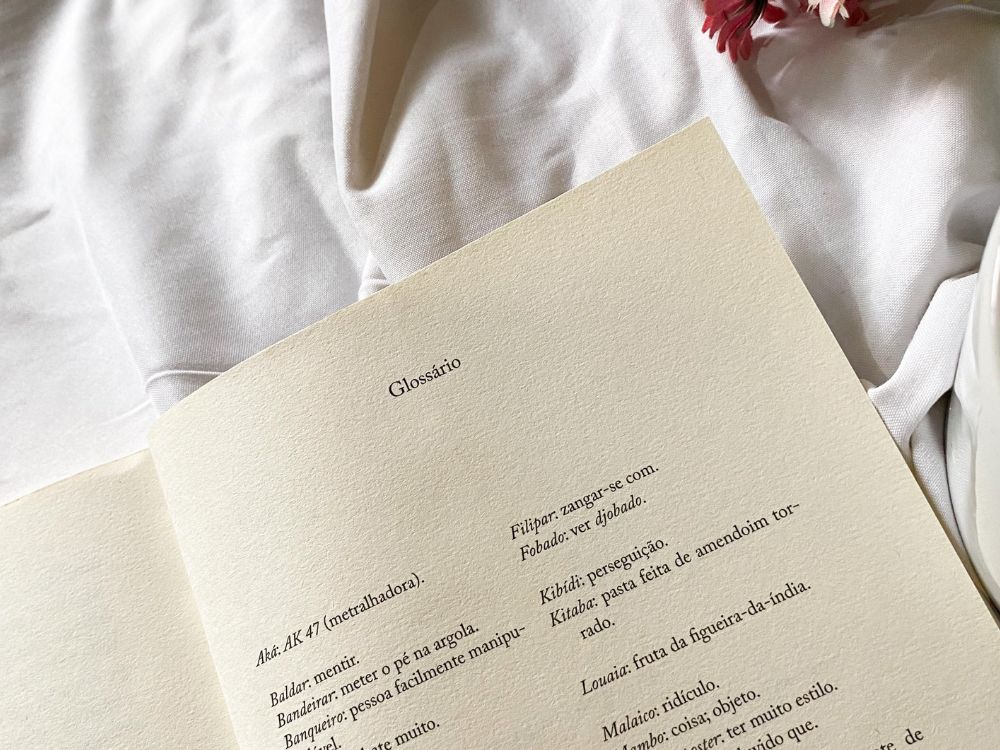 Glossário
Aká: AK 47 (metralhadora).
Baldar: mentir.
Bandeirar: meter o pé na argola.
Banqueiro: pessoa facilmente manipu-
muito.
Filipar: zangar-se com.
Fobado: ver djobado.
Kibídi: perseguição.
Kitaba: pasta feita de amendoim tor-
rado.
Louaia: fruta da figueira-da-índia.
Malaico: ridículo.
Mambo: coisa; objeto.
ter muito estilo.
que.
de